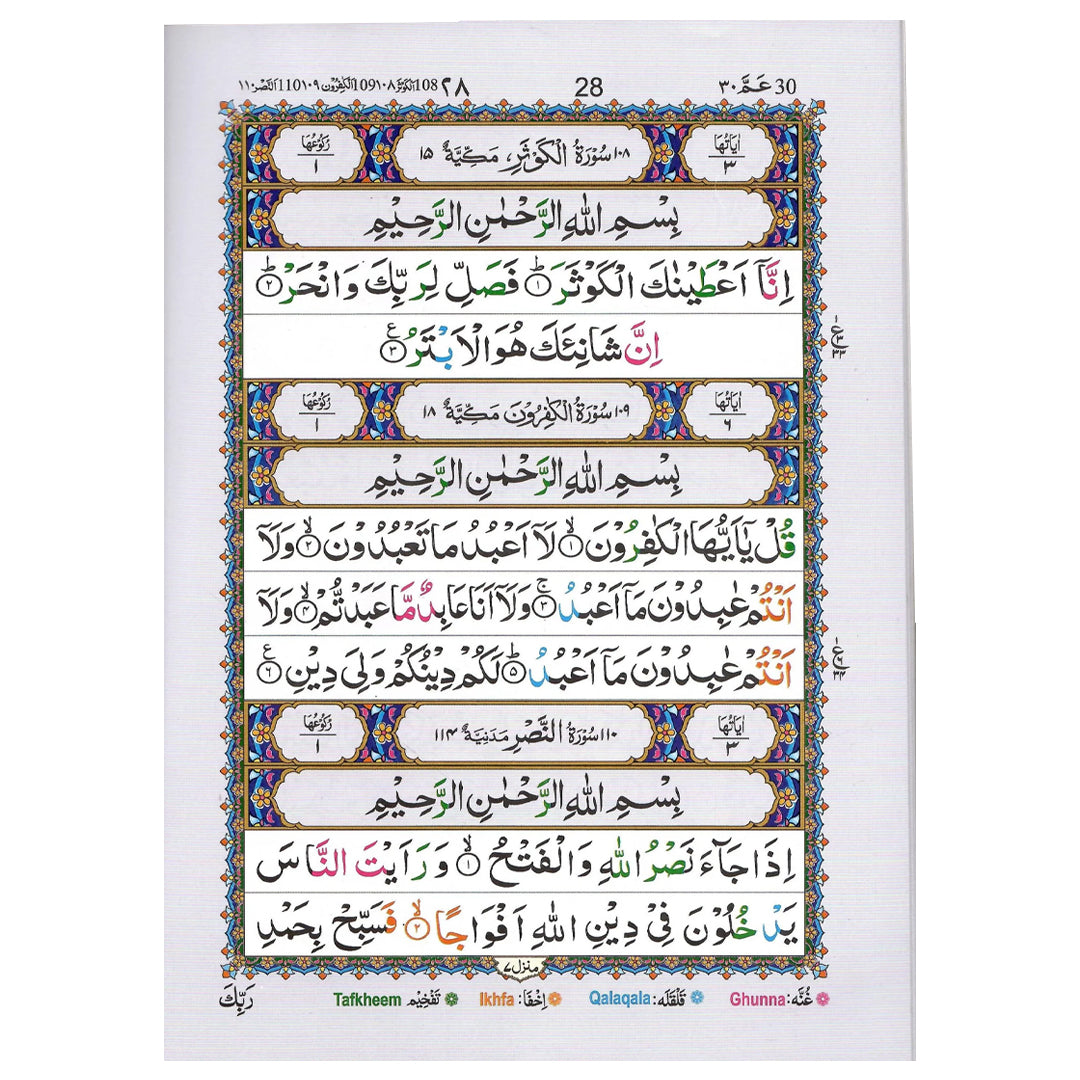 ١١٠ النَّصْر 110 ١٠٩ الْكٰفِرُوْن 109 ١٠٨ الْكَوْثَر 108 ٢٨
28
٣٠ عَمَّ 30
اٰيَاتُهَا ٣
١٠٨ سُوْرَةُ الْكَوْثَرِ مَكِّيَّةٌ ١٥
رُكُوْعُهَا ١
بِسْمِ اللّٰهِ الرَّحْمٰنِ الرَّحِيْمِ
اِنَّاۤ اَعْطَيْنٰكَ الْكَوْثَرَؕ ۝١ فَصَلِّ لِرَبِّكَ وَانْحَرْؕ ۝٢
اِنَّ شَانِئَكَ هُوَ الْاَبْتَرُ ۝٣ ع
اٰيَاتُهَا ٦
١٠٩ سُوْرَةُ الْكٰفِرُوْنَ مَكِّيَّةٌ ١٨
رُكُوْعُهَا ١
بِسْمِ اللّٰهِ الرَّحْمٰنِ الرَّحِيْمِ
قُلْ يٰۤاَيُّهَا الْكٰفِرُوْنَۙ ۝١ لَاۤ اَعْبُدُ مَا تَعْبُدُوْنَۙ ۝٢ وَلَاۤ
اَنْتُمْ عٰبِدُوْنَ مَاۤ اَعْبُدُۚ ۝٣ وَلَاۤ اَنَا عَابِدٌ مَّا عَبَدْتُّمْۙ ۝٤ وَلَاۤ
اَنْتُمْ عٰبِدُوْنَ مَاۤ اَعْبُدُؕ ۝٥ لَكُمْ دِيْنُكُمْ وَلِيَ دِيْنِ ۝٦ ع
اٰيَاتُهَا ٣
١١٠ سُوْرَةُ النَّصْرِ مَدَنِيَّةٌ ١١٤
رُكُوْعُهَا ١
بِسْمِ اللّٰهِ الرَّحْمٰنِ الرَّحِيْمِ
اِذَا جَآءَ نَصْرُ اللّٰهِ وَالْفَتْحُۙ ۝١ وَرَاَيْتَ النَّاسَ
يَدْخُلُوْنَ فِيْ دِيْنِ اللّٰهِ اَفْوَاجًاۙ ۝٢ فَسَبِّحْ بِحَمْدِ
منزل ٧
Ghunna: غُنَّه Qalaqala: قَلْقَلَه Ikhfa: اِخْفَا Tafkheem تَفْخِيْم
رَبِّكَ